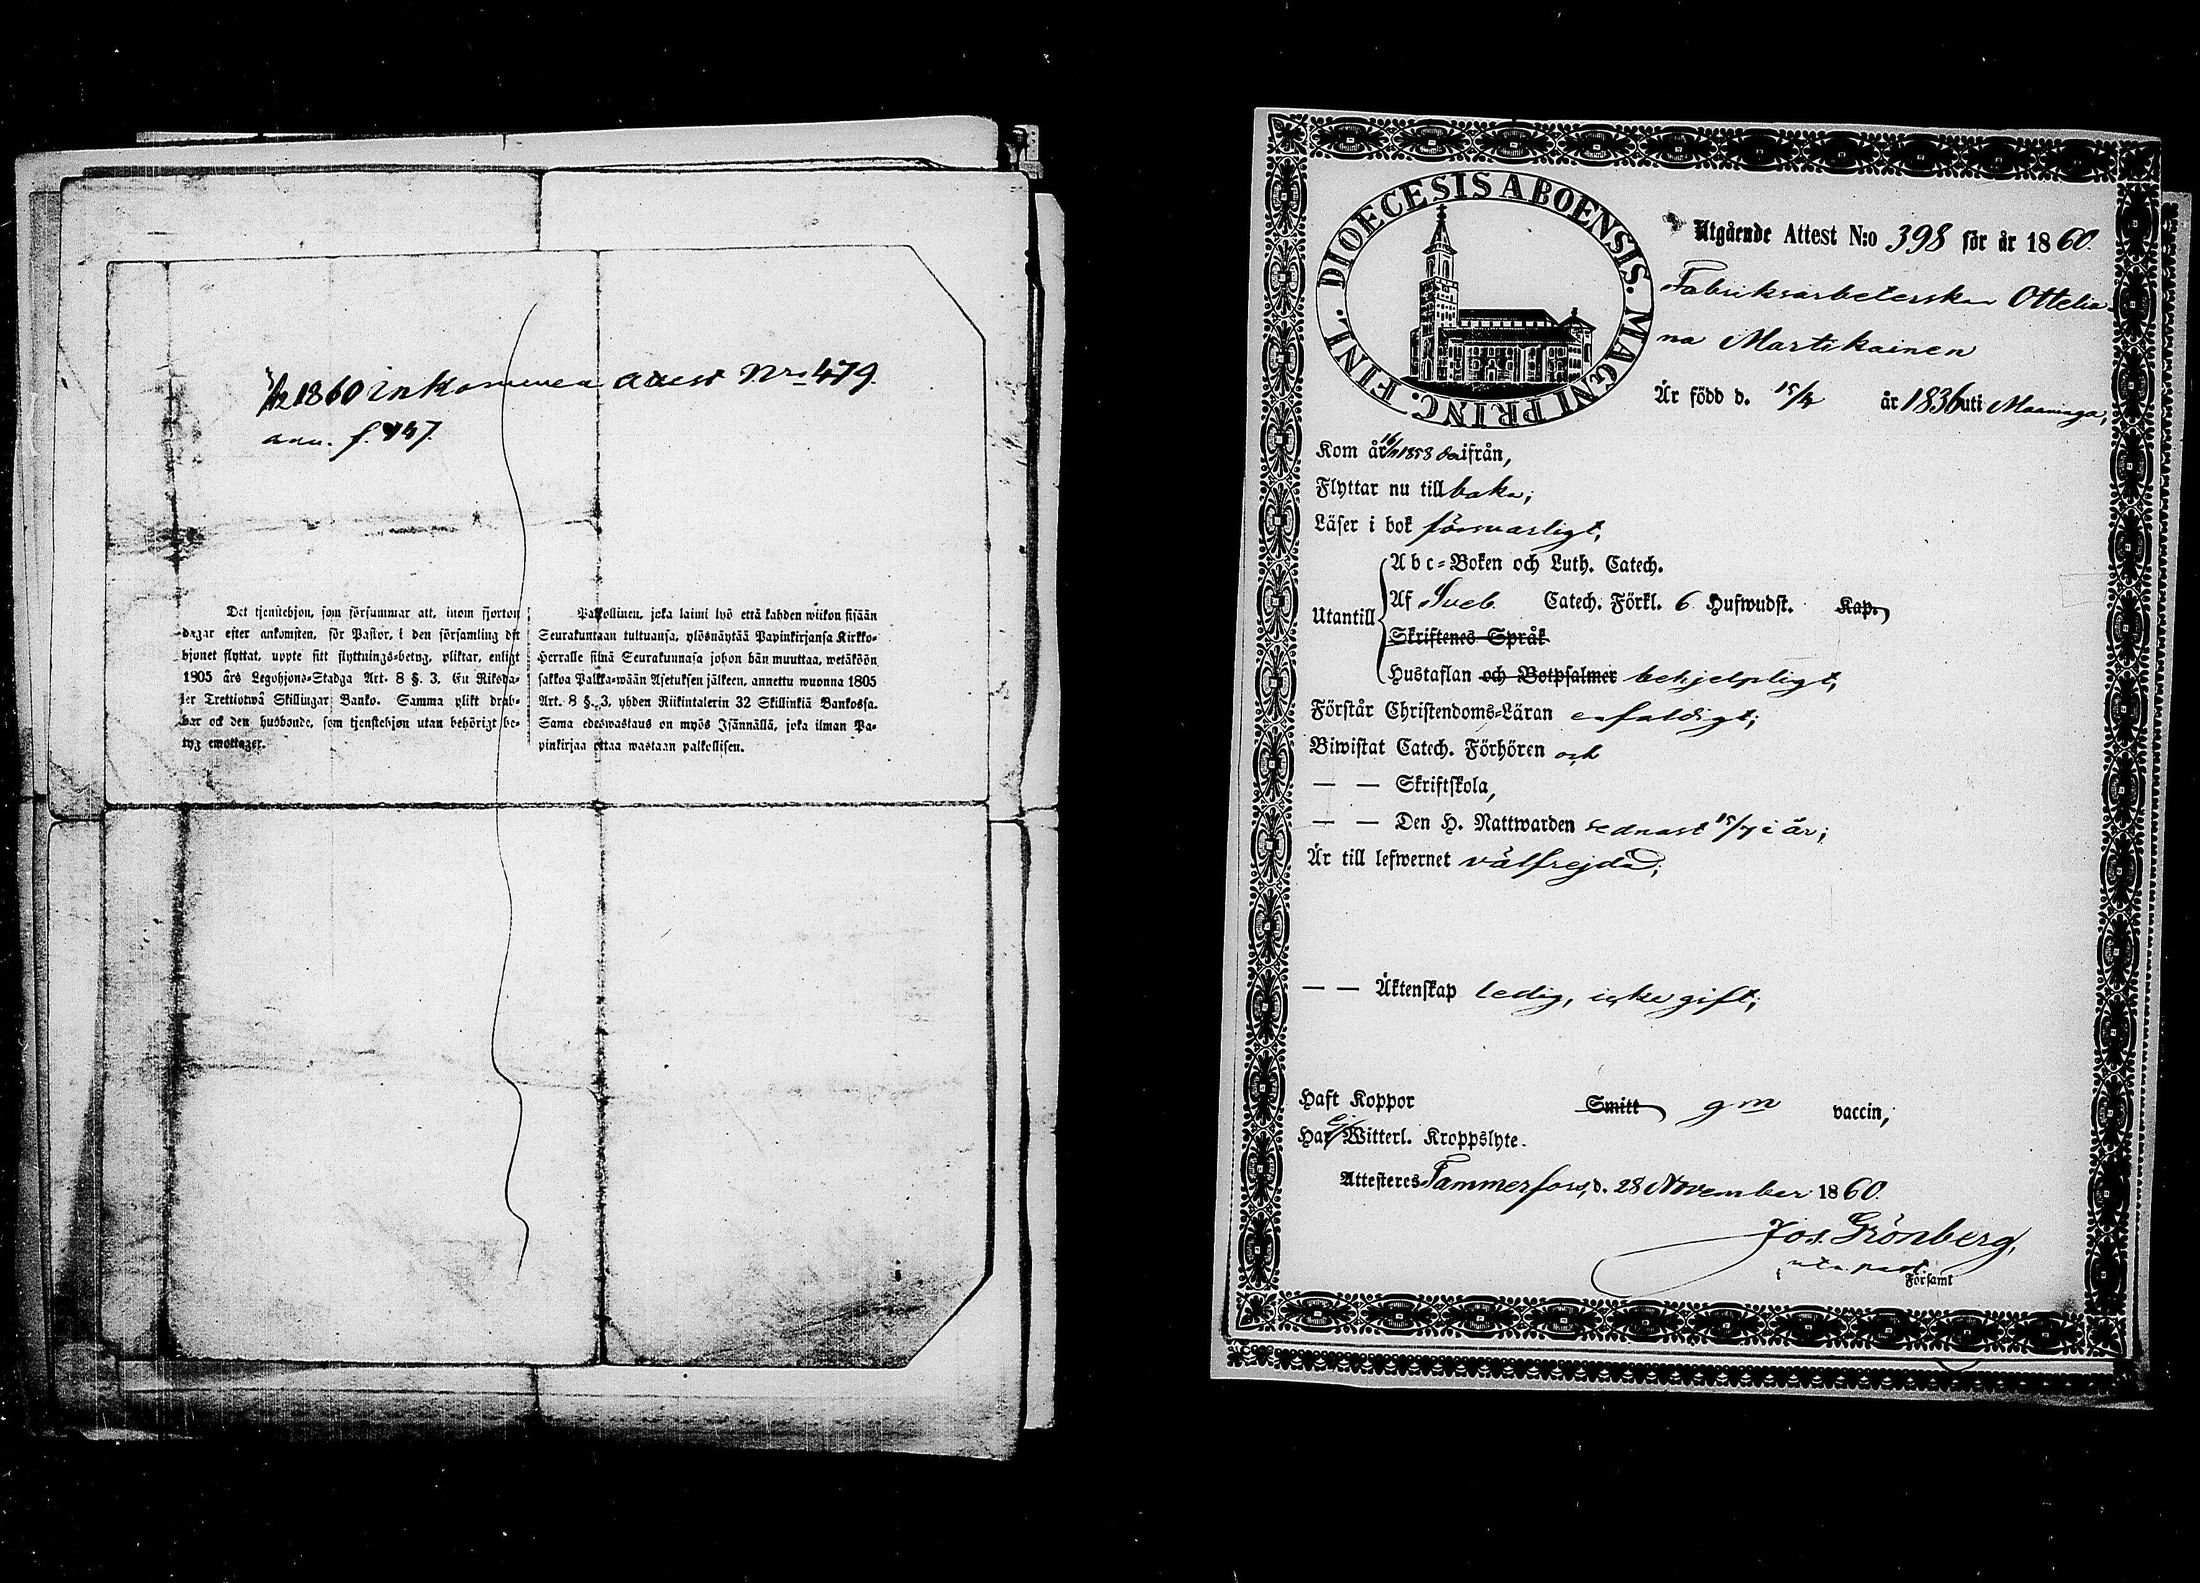 År 1860 inkommen attest Nro 479.
ann. f. 447.
Det tjenstehjon, som försummar att, inom fjorton
dagar efter ankomsten, för Pastor, i den församling dit
hjonet flyttat, uppte sitt flyttnings-betyg, pliktar, enligt
1805 års Legohjons-Stadga Art. 8 §. 3. En Riksda-
ler Trettiotwå Skillingar Banko. Samma plikt drab-
bar ock den husbonde, som tjenstehjon utan behörigt be-
tyg emottager.
Palkollinen, joka laimi lyö että kahden wiikon sisään
Seurakuntaan tultuansa, ylösnäytää Papinkirjansa Kirkko-
Herralle siinä Seurakunnasa johon hän muuttaa, wetäköön
sakkoa Palkka-wään Asetuksen jälkeen, annettu wuonna 1805
Art. 8 §. 3. yhden Riikintalerin 32 Skillinkiä Bankossa.
Sama edeswastaus on myös Isännällä, joka ilman Pa-
pinkirjaa ottaa wastaan palkollisen.
DIOECESIS ABOENSIS. MAGNI PRINC. FINL.
Utgående Attest N:o 398 för år 1860.
Fabriksarbeterskan Ottelia-
na Martikainen
Är född d. 15/4 år 1836 uti Maaninga;
Kom år 16/11 1858 därifrån,
Flyttar nu tillbaka;
Läser i bok försvarligt;
Utantill
Abc-Boken och Luth. Catech.
Af Sveb. Catech. Förkl. 6 Hufwudst. Kap.
Skriftenes Språk
Hustaflan och Botpsalmer behjelpligt;
Förstår Christendoms-Läran enfaldigt;
Biwistat Catech. Förhören och
— — Skriftskola,
— — Den H. Nattwarden sednast 15/7 i år;
Är till lefwernet välfrejdad;
— — Äktenskap ledig, icke gift;
Haft Koppor Smitt gm vaccin,
Har ej Witterl. Kroppslyte.
Attesteres Tammerfors, d. 28 November 1860.
Jos. Grönberg,
i Församl